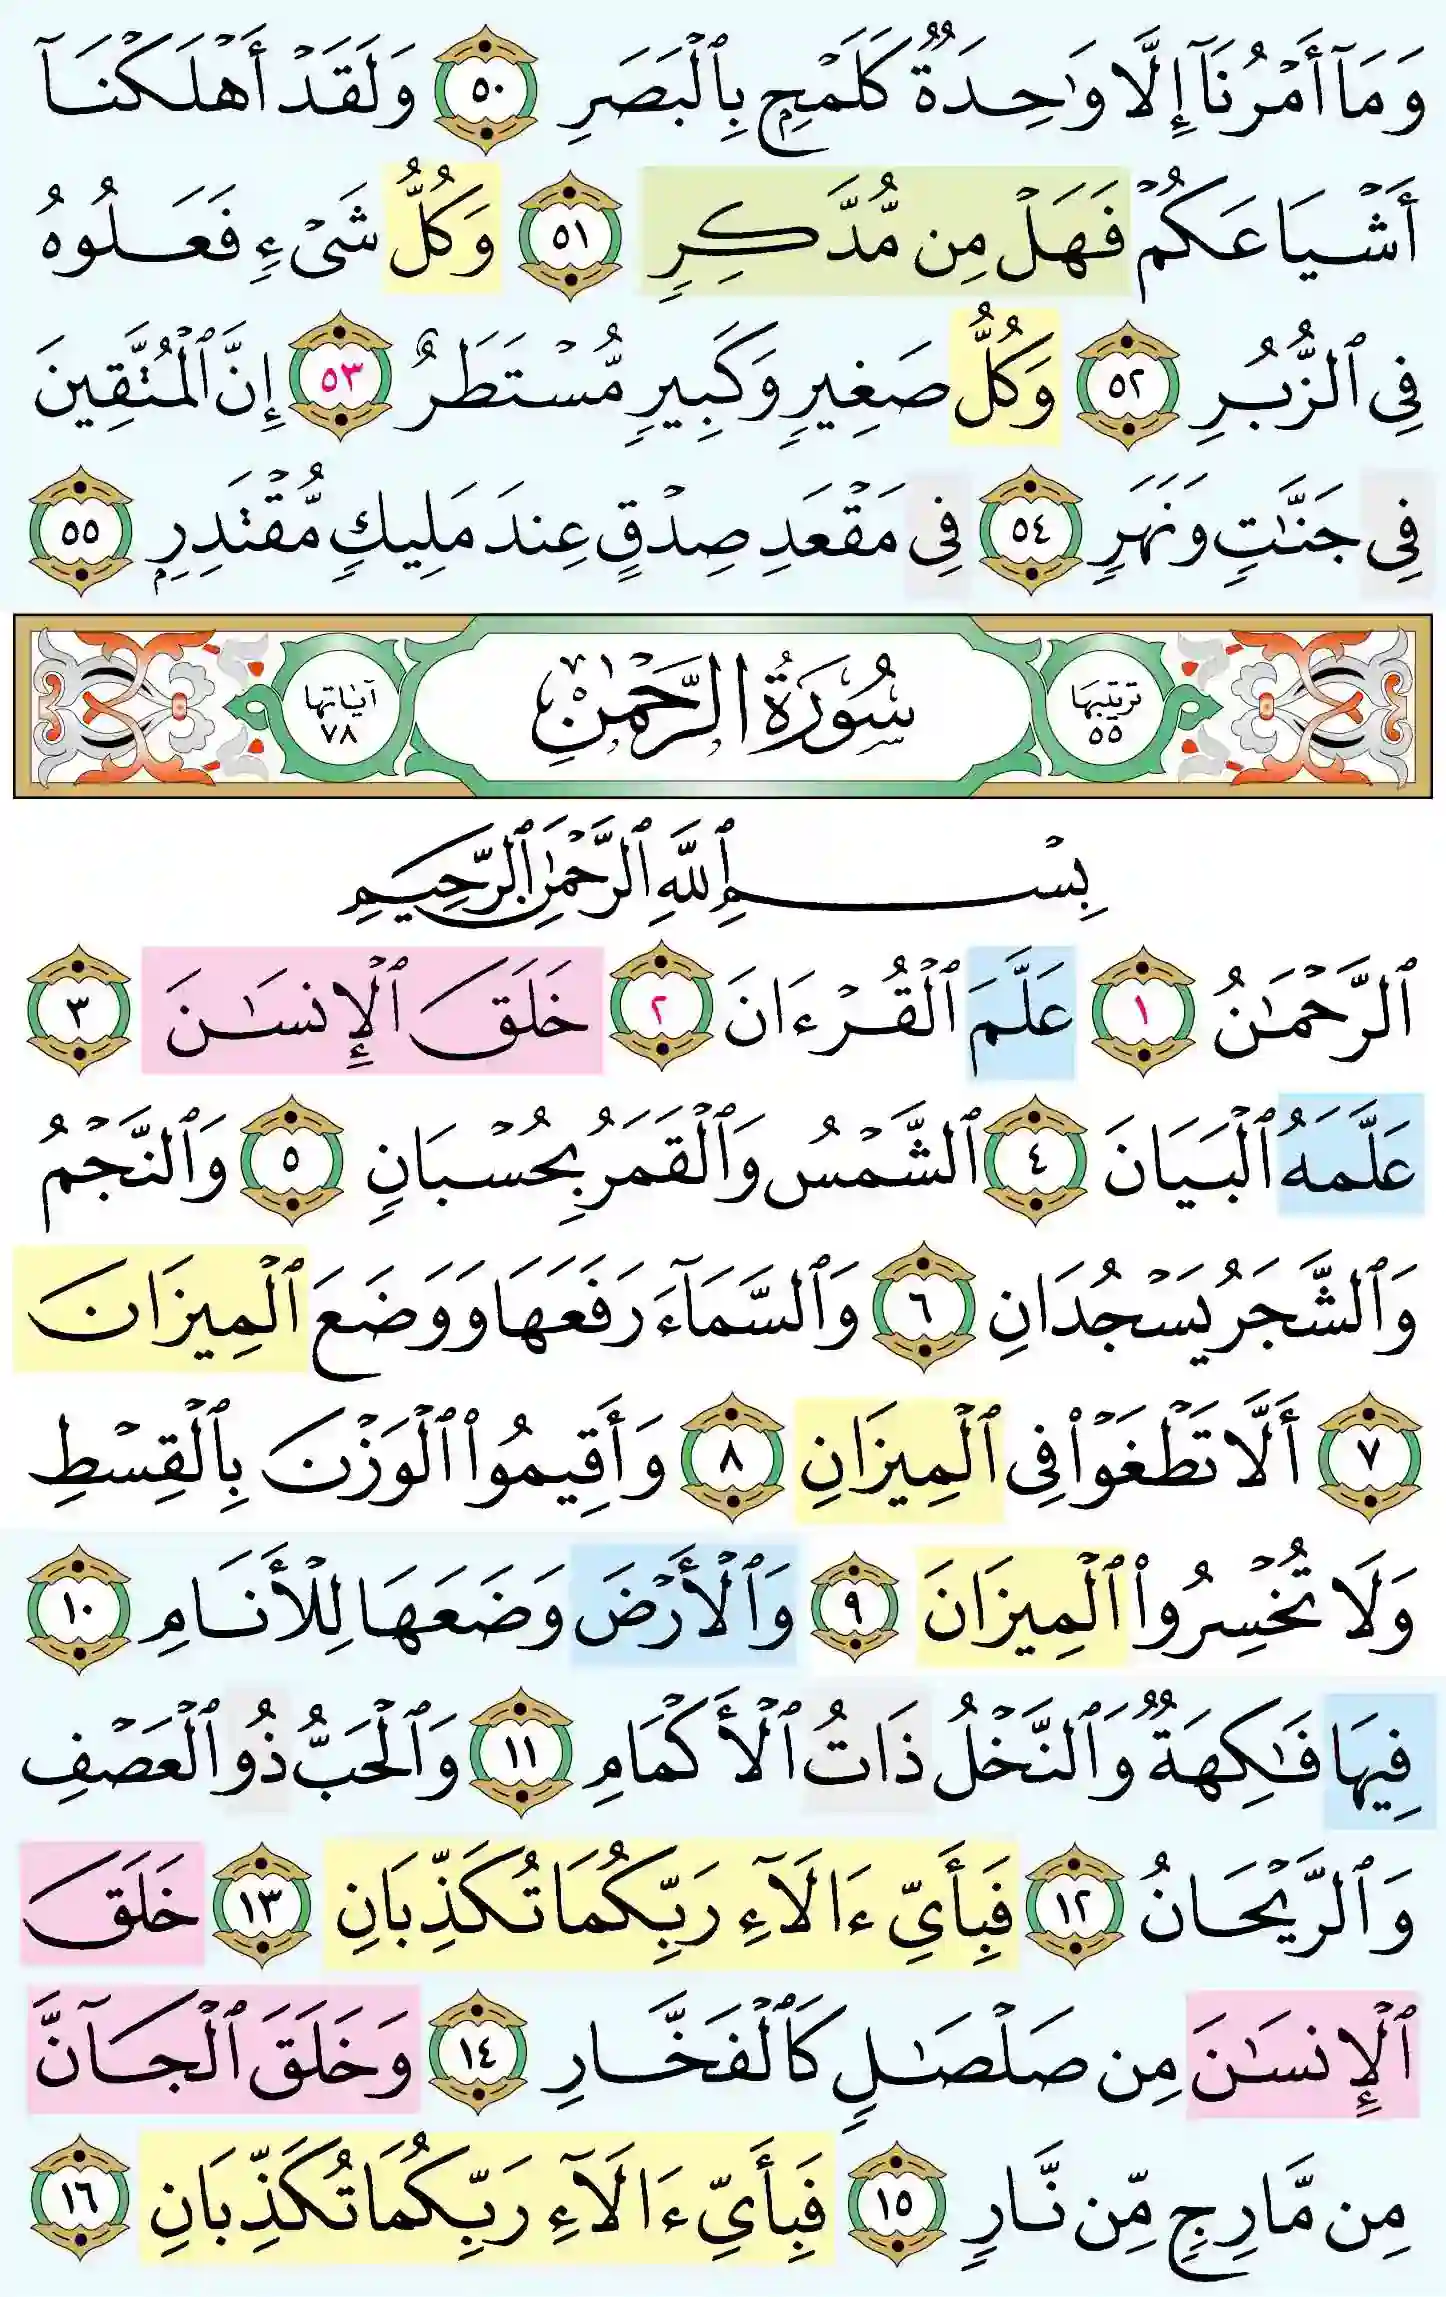 وَمَآ أَمْرُنَآ إِلَّا وَٰحِدَةٌ كَلَمْحٍۭ بِٱلْبَصَرِ ٥٠ وَلَقَدْ أَهْلَكْنَآ
أَشْيَاعَكُمْ فَهَلْ مِن مُّدَّكِرٍ ٥١ وَكُلُّ شَىْءٍ فَعَلُوهُ
فِى ٱلزُّبُرِ ٥٢ وَكُلُّ صَغِيرٍ وَكَبِيرٍ مُّسْتَطَرٌ ٥٣ إِنَّ ٱلْمُتَّقِينَ
فِى جَنَّٰتٍ وَنَهَرٍ ٥٤ فِى مَقْعَدِ صِدْقٍ عِندَ مَلِيكٍ مُّقْتَدِرٍۭ ٥٥
ترتيبها ٥٥ سُورَةُ الرَّحْمَٰنِ آياتها ٧٨
بِسْمِ ٱللَّهِ ٱلرَّحْمَٰنِ ٱلرَّحِيمِ
ٱلرَّحْمَٰنُ ١ عَلَّمَ ٱلْقُرْءَانَ ٢ خَلَقَ ٱلْإِنسَٰنَ ٣
عَلَّمَهُ ٱلْبَيَانَ ٤ ٱلشَّمْسُ وَٱلْقَمَرُ بِحُسْبَانٍ ٥ وَٱلنَّجْمُ
وَٱلشَّجَرُ يَسْجُدَانِ ٦ وَٱلسَّمَآءَ رَفَعَهَا وَوَضَعَ ٱلْمِيزَانَ
٧ أَلَّا تَطْغَوْا۟ فِى ٱلْمِيزَانِ ٨ وَأَقِيمُوا۟ ٱلْوَزْنَ بِٱلْقِسْطِ
وَلَا تُخْسِرُوا۟ ٱلْمِيزَانَ ٩ وَٱلْأَرْضَ وَضَعَهَا لِلْأَنَامِ ١٠
فِيهَا فَٰكِهَةٌ وَٱلنَّخْلُ ذَاتُ ٱلْأَكْمَامِ ١١ وَٱلْحَبُّ ذُو ٱلْعَصْفِ
وَٱلرَّيْحَانُ ١٢ فَبِأَىِّ ءَالَآءِ رَبِّكُمَا تُكَذِّبَانِ ١٣ خَلَقَ
ٱلْإِنسَٰنَ مِن صَلْصَٰلٍ كَٱلْفَخَّارِ ١٤ وَخَلَقَ ٱلْجَآنَّ
مِن مَّارِجٍ مِّن نَّارٍ ١٥ فَبِأَىِّ ءَالَآءِ رَبِّكُمَا تُكَذِّبَانِ ١٦